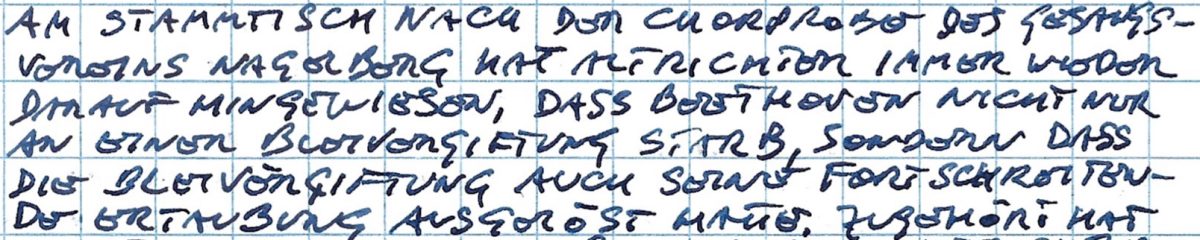 AM STAMMTISCH NACH DER CHORPROBE DES GESANGS-
VEREINS NAGELBERG HAT ALTRICHTER IMMER WIEDER
DARAUF HINGEWIESEN, DASS BEETHOVEN NICHT NUR
AN EINER BLEIVERGIFTUNG STARB, SONDERN DASS
DIE BLEIVERGIFTUNG AUCH SEINE FORTSCHREITEN-
DE ERTAUBUNG AUSGELÖST HATTE. ZUGEHÖRT HAT